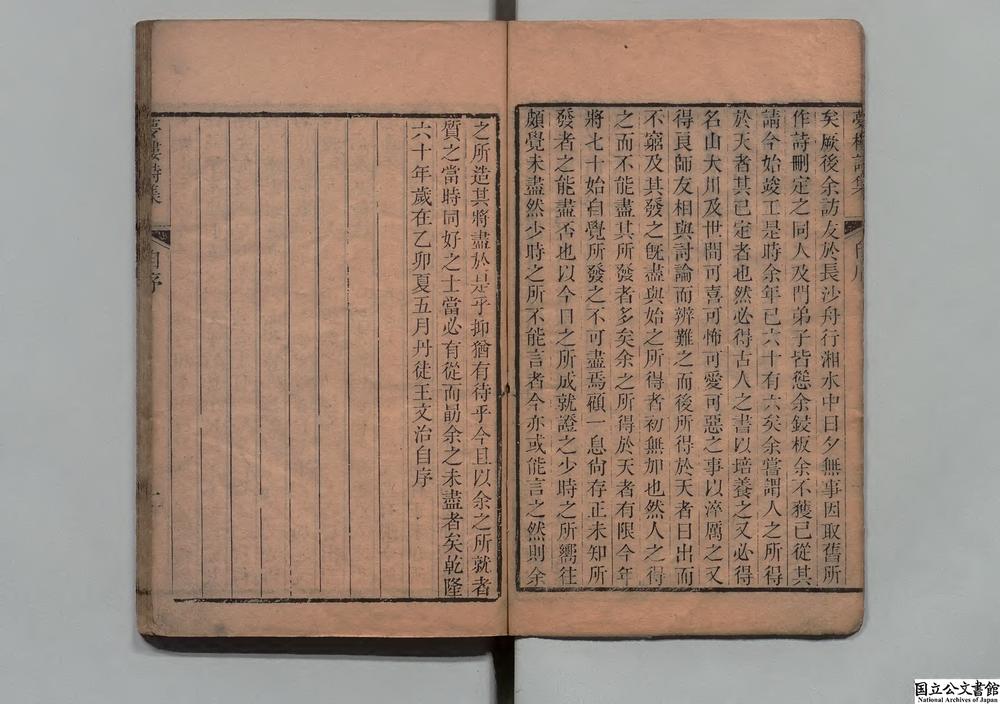 夢樓詩集
自序
矣厥後余訪友於長沙舟行湘水中日夕無事因取舊所
作詩刪定之同人及門弟子皆慫余鋟板余不獲已從其
請今始竣工是時余年已六十有六矣余嘗謂人之所得
於天者其已定者也然必得古人之書以培養之又必得
名山大川及世間可喜可怖可愛可惡之事以淬厲之又
得良師友相與討論而辨難之而後所得於天者日出而
不窮及其發之旣盡與始之所得者初無加也然人之得
之而不能盡其所發者多矣余之所得於天者有限今年
將七十始自覺所發之不可盡焉顧一息尙存正未知所
發者之能盡否也以今日之所成就證之少時之所嚮往
頗覺未盡然少時之所不能言者今亦或能言之然則余
之所造其將盡於是乎抑猶有待乎今且以余之所就者
質之當時同好之士當必有從而勗余之未盡者矣乾隆
六十年歲在乙卯夏五月丹徒王文治自序
夢樓詩集
自序
国立公文書館
National Archives of Japan